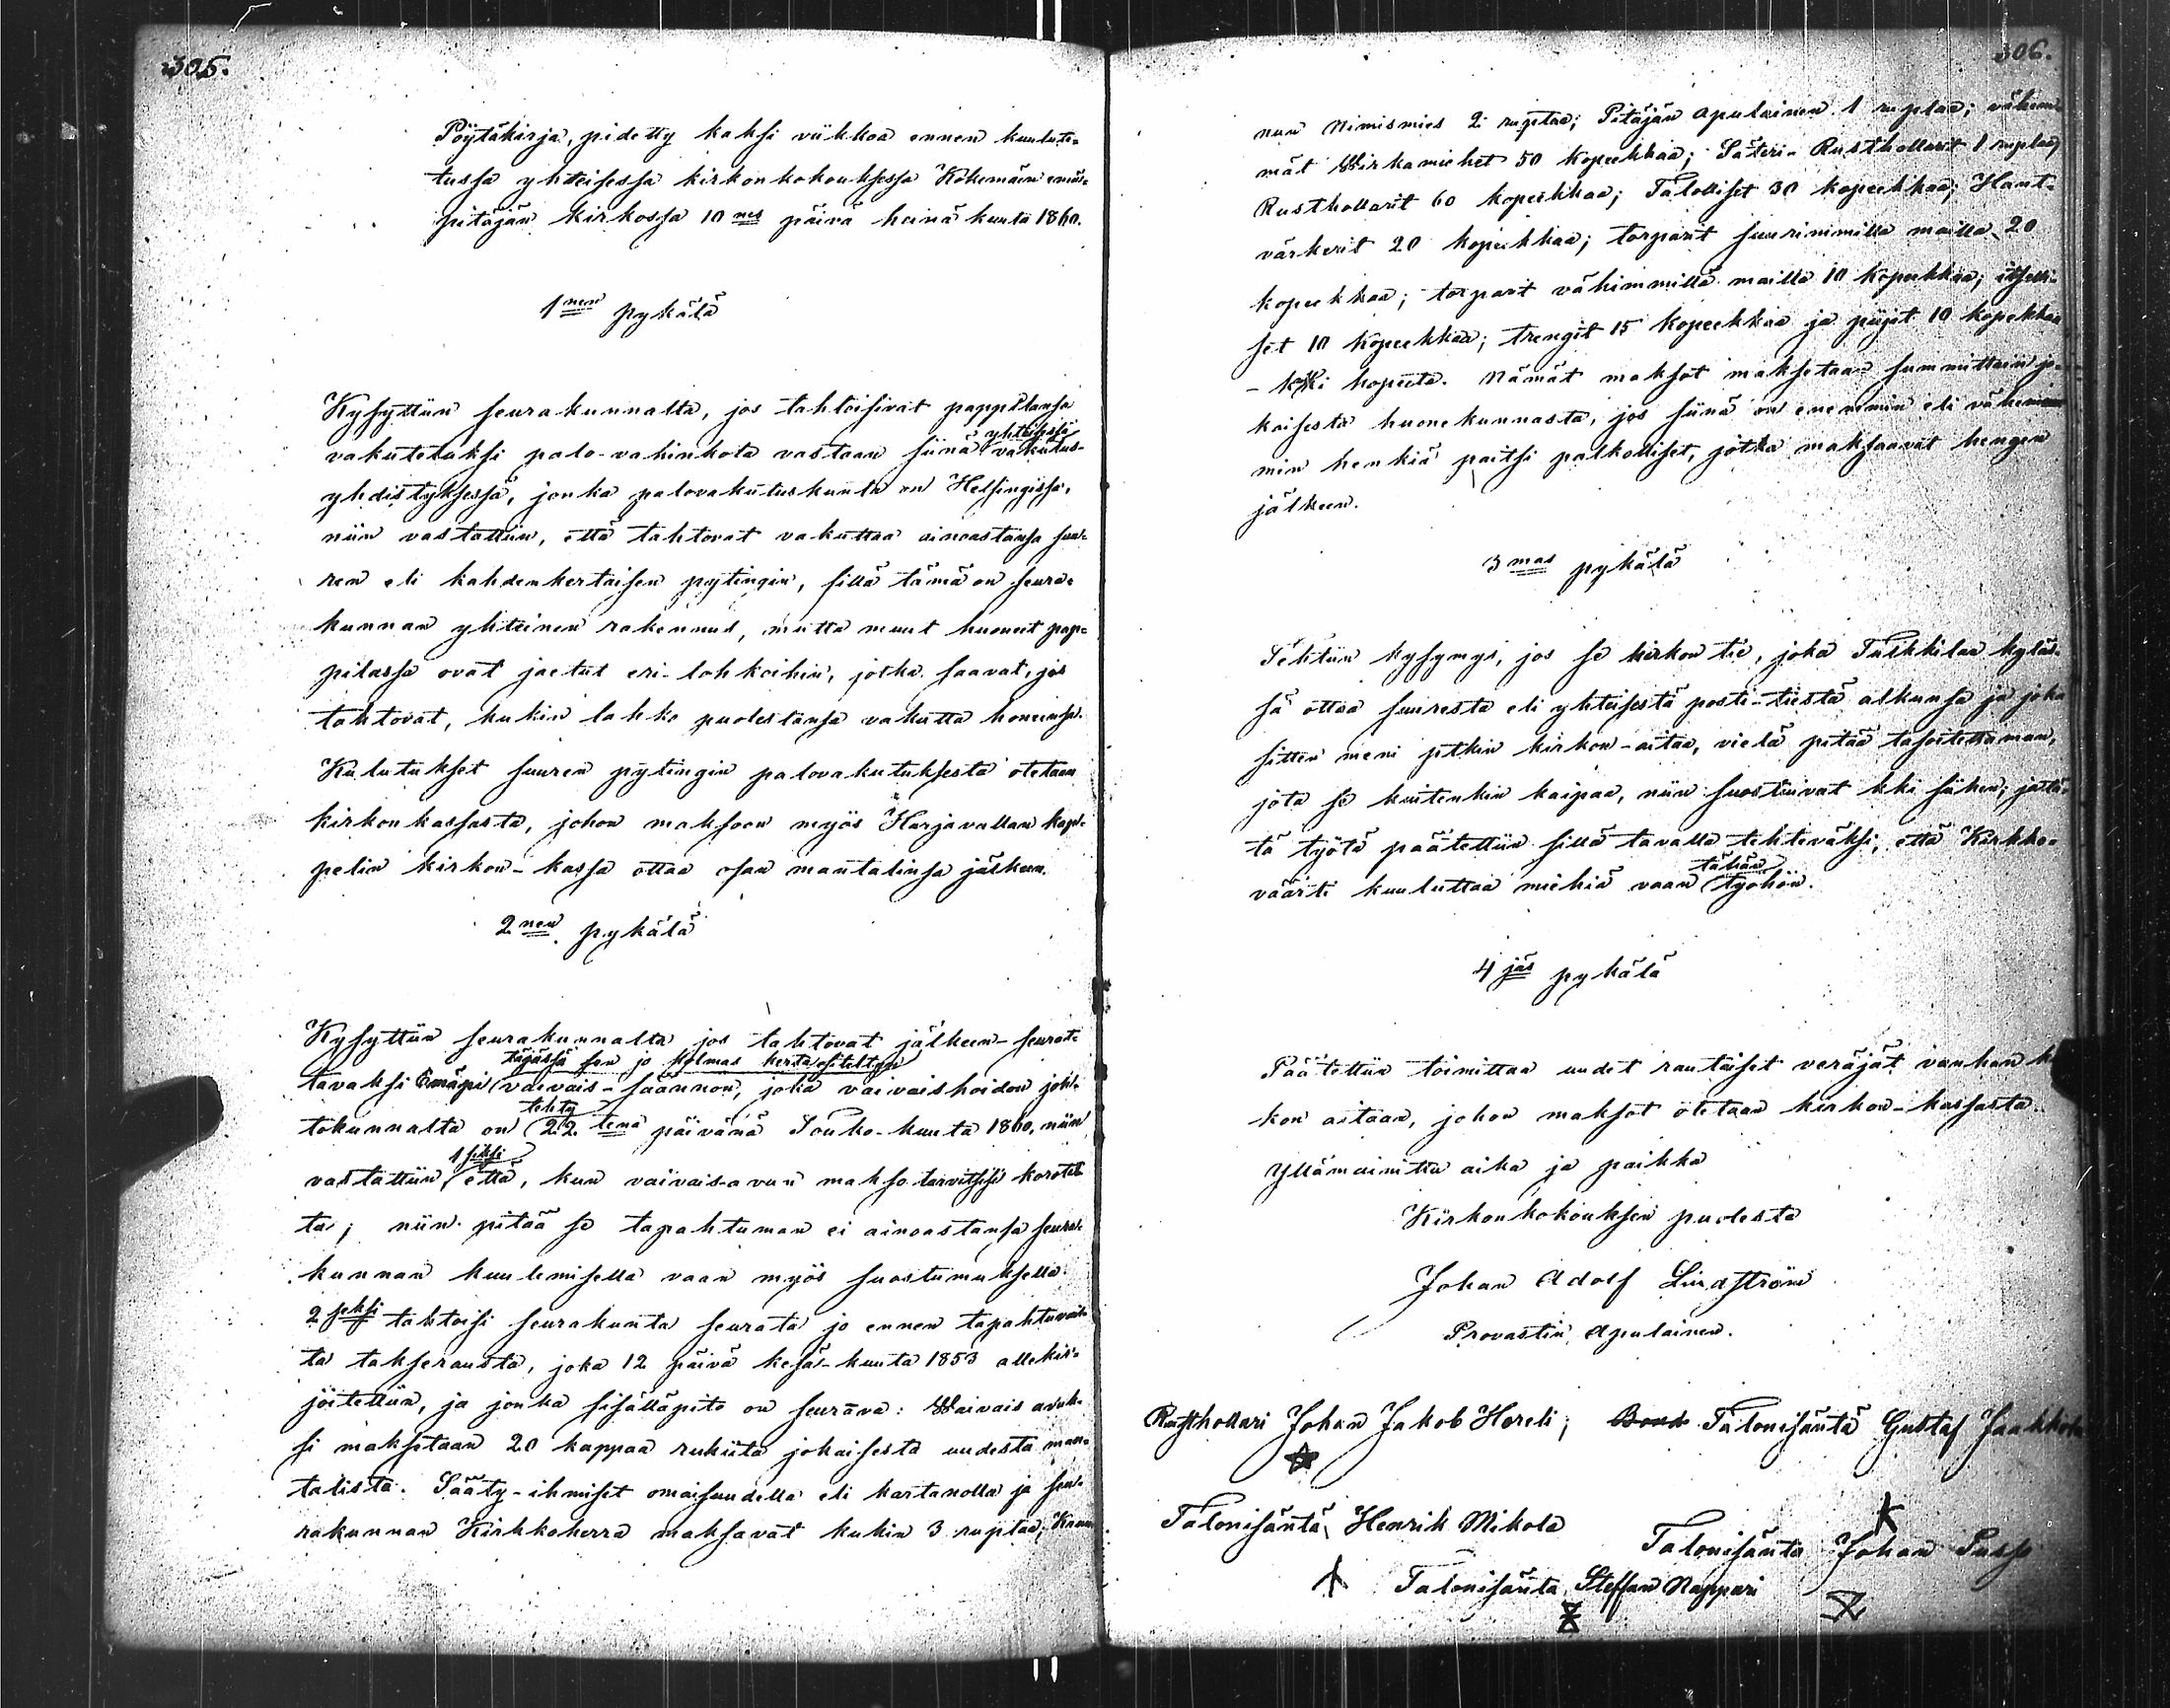 305.
Pöytäkirja, pidetty kaksi viikkoa ennen kuulute-
tussa yhteisessä kirkonkokouksessa Kokemäen emä-
pitäjän kirkossa 10 nes päivä heinä kuuta 1860.
1 nen pykälä
Kysyttiin seurakunnalta, jos tahtoisivat pappilansa
yhteisessä
vakutetuksi palo-vahinkota vastaan siinä vakutus-
yhdistyksessä, jonka palovakutuskunta on Helsingissä,
niin vastattiin, että tahtovat vakuttaa ainoastansa suu-
ren eli kahdenkertaisen pytingin, sillä tämä on seura-
kunnan yhteinen rakennus, mutta muut huoneet pap-
pilassa ovat jaetut eri-lohkoihin, jotka saavat, jos
tahtovat, kukin lohko puolestansa vakutta honeensa.
Kulutukset suuren pytingin palovakutuksesta otetaan
kirkonkassasta, johon maksoon myös Harjavallan kap-
pelin kirkon-kassa ottaa osan mantalinsa jälkeen.
2 nen pykälä
Kysyttiin seurakunnalta jos tahtovat jälkeen-seurat-
täjässä sen jo kolmas kerta esitehtyn
tavaksi Emäpi vaivais-säännön, joka vaivaishoidon joh-
tehty
tokunnalta on 22 tena päivänä Touko-kuuta 1860, niin
1 seksi
vastattiin että, kun vaivais-avun makso tarvitsisi korotet-
ta; niin pitää se tapahtuman ei ainoastansa seura-
kunnan kuulemisella vaan myös suostumuksella.
2 seksi tahtoisi seurakunta seurata jo ennen tapahtuvai-
ta takserausta, joka 12 päivä kesä-kuuta 1853 allekir-
joitettiin, ja jonka sisälläpito on seurava: Waivais avuk-
si maksetaan 20 kappaa rukiita jokaisesta uudesta man-
talista. Sääty-ihmiset omaisuudella eli kartanolla ja seu-
rakunnan Kirkkoherra maksavat kukin 3 ruplaa; Kruu
306.
nun Nimismies 2 ruplaa; Pitäjän apulainen 1 ruplaa; vähem
mät Wirkamiehet 50 kopeekkaa; Säteri-Rusthollarit 1 ruplaa;
Rusthollarit 60 kopeekkaa; Talolliset 30 kopeekkaa; Hant-
värkerit 20 kopeekkaa; torparit suurimmilla mailla 20
kopeekkaa; torparit vähimmillä mailla 10 kopeekkaa; itselli-
set 10 kopeekkaa; trengit 15 kopeekkaa ja piijat 10 kopekkaa
- kaikki hopeeta. Nämät maksot maksetaan summittain jo-
kaisesta huonekunnasta, jos siinä on enemmin eli vähem
min henkiä paitsi palkolliset, jotka maksaavat hengen
jälkeen.
3 mas pykälä
Tehtiin kysymys, jos se kirkon tie, joka Tulkkilan kyläs-
sä ottaa suuresta eli yhteisestä posti-tiestä alkunsa ja joka
sitten meni pitkin kirkon-aitaa, vielä pitää tasoitettaman,
jota se kuitenkin kaipaa, niin suostuivat kki siihen; ja tä-
tä työtä päätettiin sillä tavalla tehteväksi, että Kirkko-
tähän
väärti kuuluttaa miehiä vaan työhön.
4 jäs pykälä
Päätettiin toimittaa uudet rautaiset veräjät vanhan
kon aitaan, johon maksot otetaan kirkon-kassasta.
Yllämainittu aika ja paikka
Kirkonkokouksen puolesta
Johan Adolf Lindström
Provastin Apulainen.
Rusthollari Johan Jakob Horeli; Talonisäntä Gustaf Jaakkola
Talonisäntä Henrik Mikola
Talonisäntä Johan
Talonisäntä Steffan Nappari